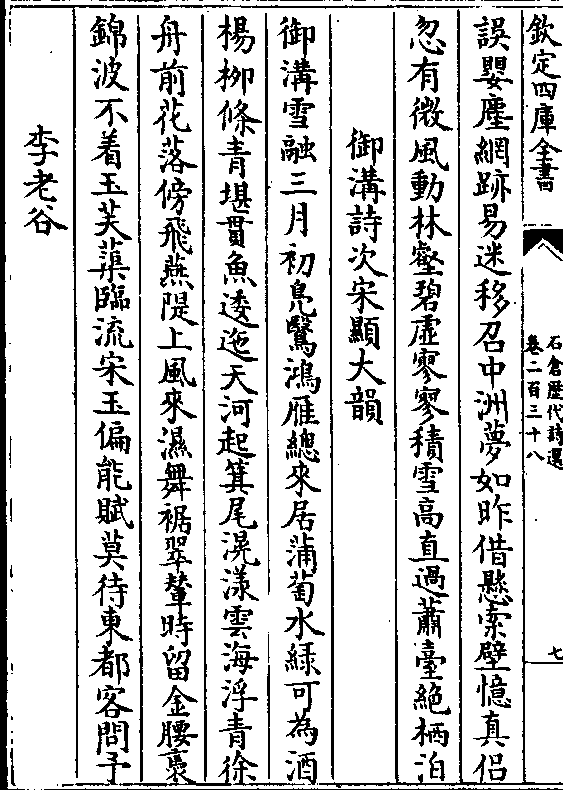 欽定四庫全書
石倉歴代詩選
卷二百三十八
七
誤嬰塵網跡易迷移召中洲夢如昨借懸索壁憶真侣
忽有微風動林壑碧虛寥寥積雪高直過蕭臺絶栖泊
御溝詩次宋顯夫韻
御溝雪融三月初鳬鷖鴻雁總來居蒲萄水緑可為酒
楊栁條青堪貫魚逶迤天河起箕尾滉漾雲海浮青徐
舟前花落傍飛燕隄上風來濕舞裾翠輦時留金腰褭
錦波不着玉芙蕖臨流宋玉偏能賦莫待東都客問予
李老谷